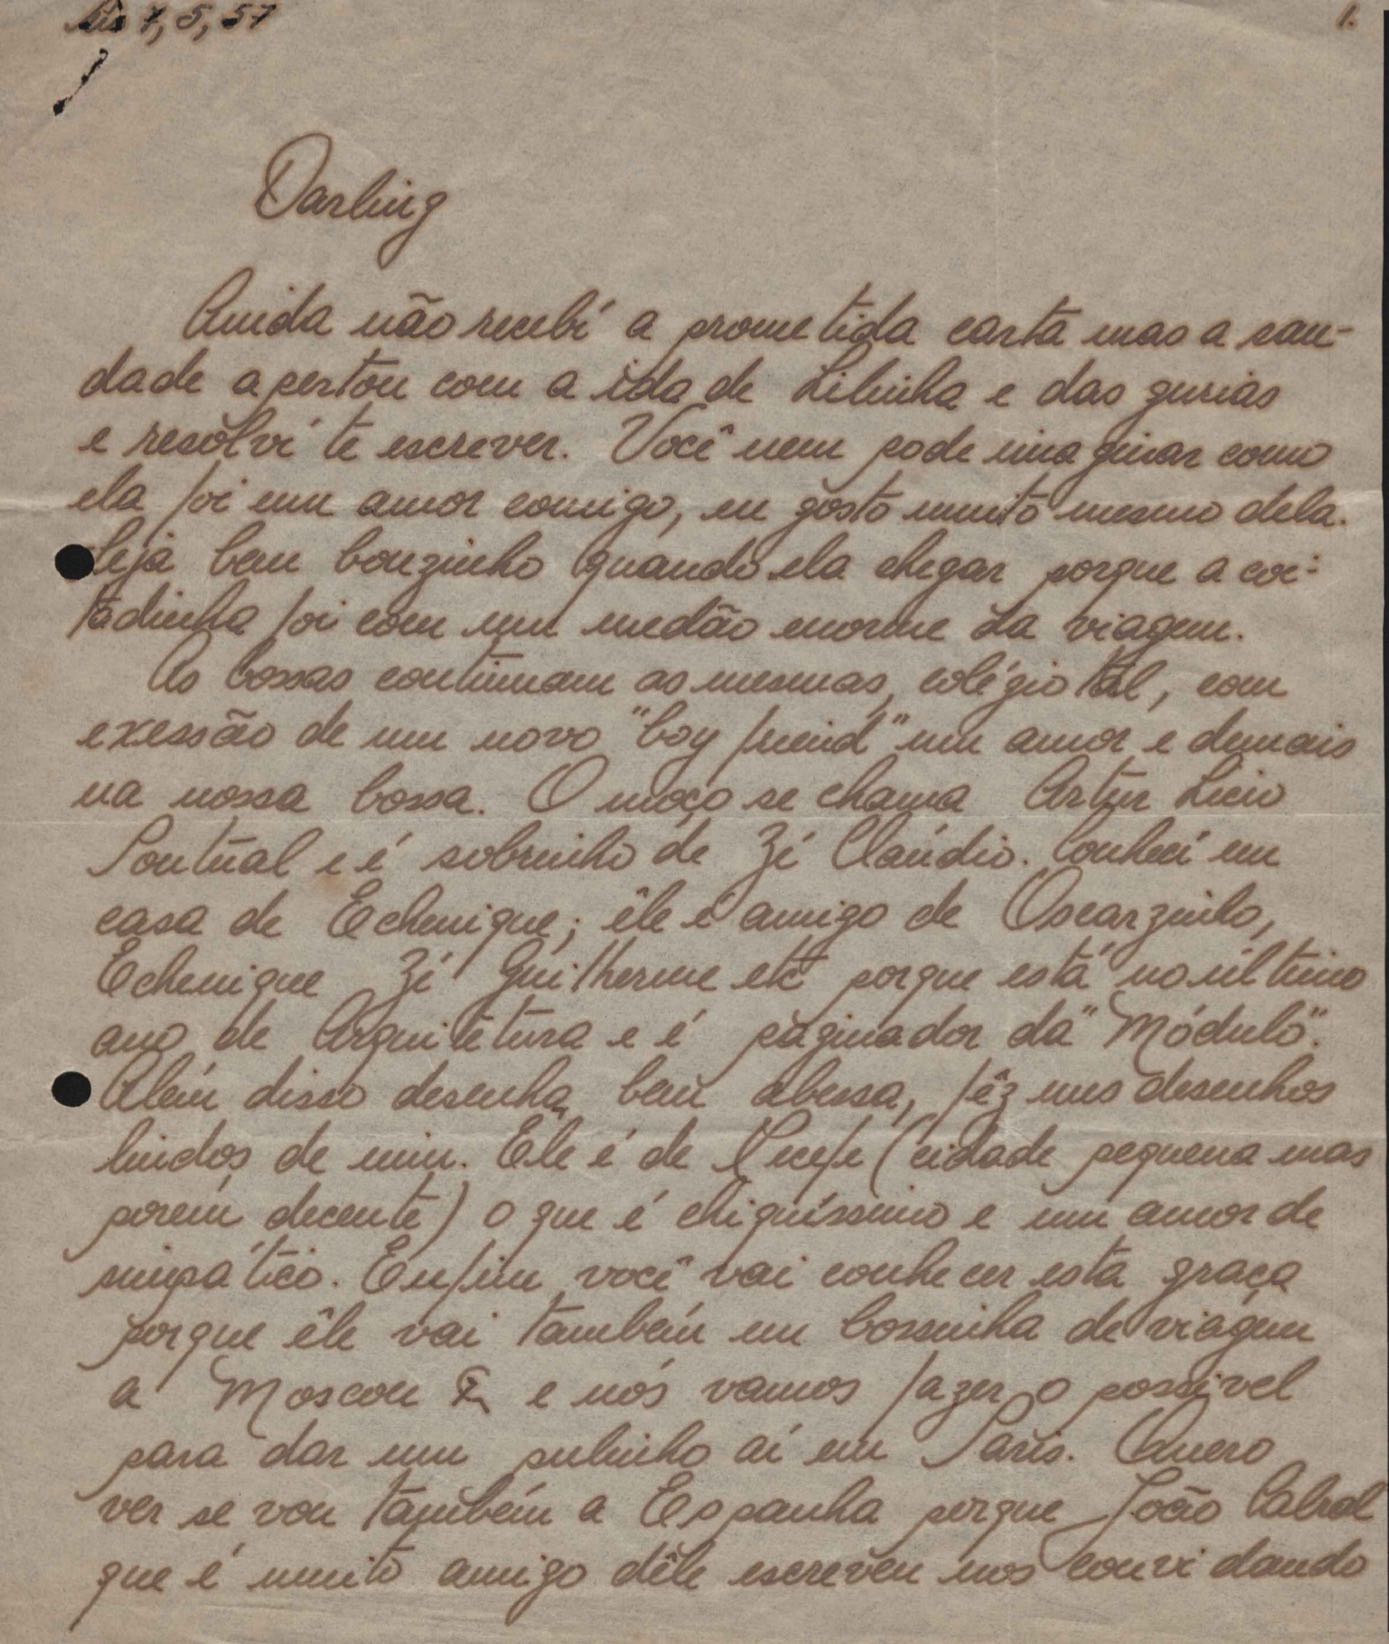 7, 5, 57
1.
Darling
Ainda não recebí a prometida carta mas a sau-
dade apertou com a ida de Lilinha e das gurias
e resolví te escrever. Você nem pode imaginar como
ela foi um amor comigo, eu gosto muito mesmo dela.
Seja bem bonzinho quando ela chegar porque a coi-
tadinha foi com um medão enorme da viagem.
As bossas continuam as mesmas, colégio tal, com
exessão de um novo "boy friend" um amor e demais
na nossa bossa. O moço se chama Artur Licio
Pontual e é sobrinho de Zé Claúdio. Conhecí em
casa de Echenique; êle é amigo de Oscarzinho,
Echenique Zé Guilherme etc porque está no último
ano de Arquitetura e é paginador da "Módulo".
Além disso desenha bem abessa, fêz uns desenhos
lindos de mim. Êle é de Recife (cidade pequena mas
porém decente) o que é chiquíssimo e um amor de
simpático. Enfim você vai conhecer esta graça
porque êle vai também em bossinha de viagem
a Moscou e nós vamos fazer o possível
para dar um pulinho aí em Paris. Quero
ver se vou também a Espanha porque João Cabral
que é muito amigo dêle escreveu nos convidando